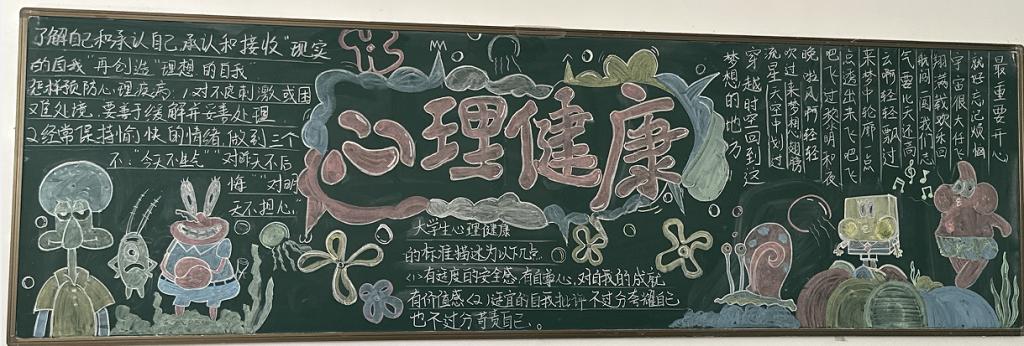 了解自己和承认自己,承认和接收"现实
的自我"再创造"理想的自我"
怎样预防心理疾病:1对不良刺激或困
难处境,要善于缓解并妥善处理
2经常保持愉快的情绪,做到三个
不:"今天不生气""对昨天不后
悔""对明
天不担心"
心理健康
大学生心理健康
的标准描述为以下几点
(1)有适度的安全感,有自尊心,对自我的成就
有价值感(2)适宜的自我批评不过分夸耀自己
也不过分苛责自己。
最重要开心
就好忘记烦恼
宇宙很大任
翱满载欢乐回
航同一圈我们志
气要比天还高
云啊轻轻飘过
来梦中轮廓一点
一点透出来飞吧飞
吧飞过黎明和夜
晚啦风啊轻轻
吹过来梦想翅膀
流星天空中划过
穿越时空回到这
梦想的地方